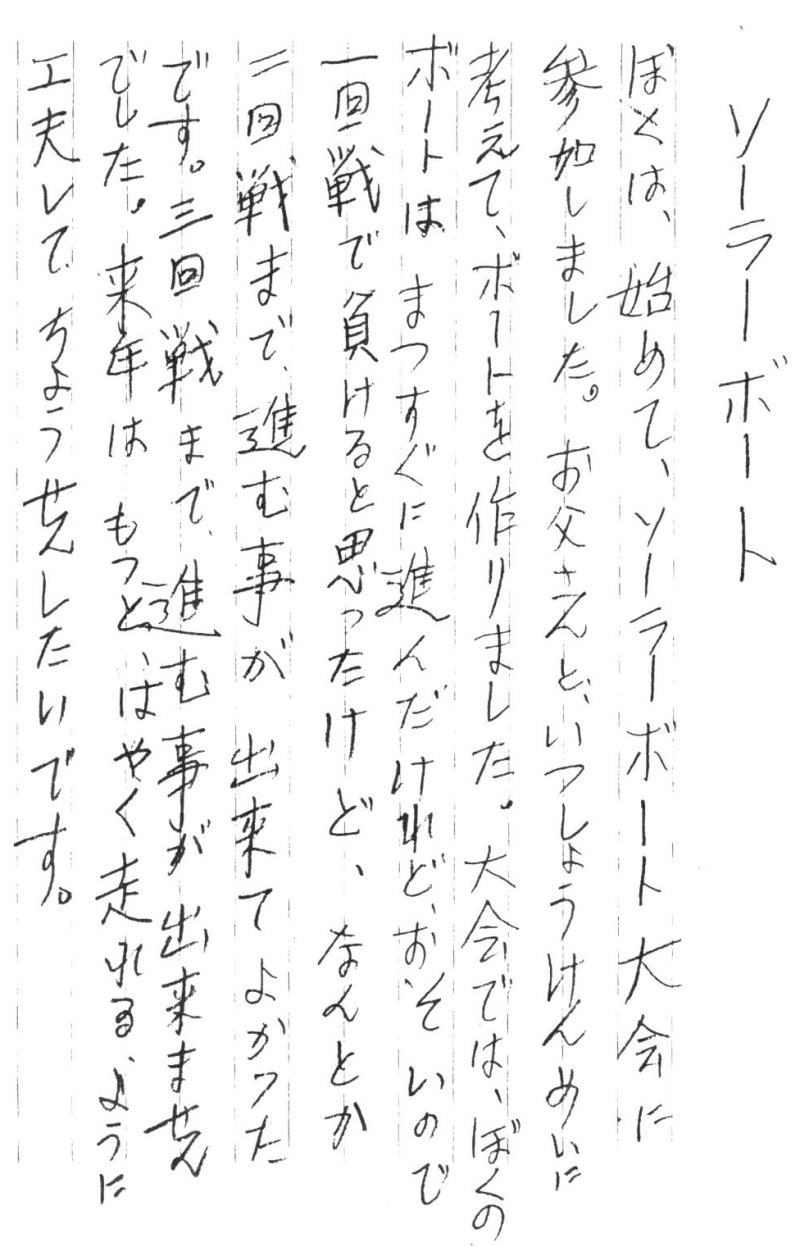 ソーラーボート
ぼくは、始めて、ソーラーボート大会に
参加しました。お父さんと、いつしょうけんめいに
考えて、ボートを作りました。大会では、ぼくの
ボートは まつすぐに進んだけれど、おそいので
一回戦で負けると思ったけど、なんとか
二回戦まで、進む事が 出来てよかった
です。三回戦まで、進む事が出来ません
でした。来年は もっと、はやく走れる、ように
工夫して ちょうせんしたいです。